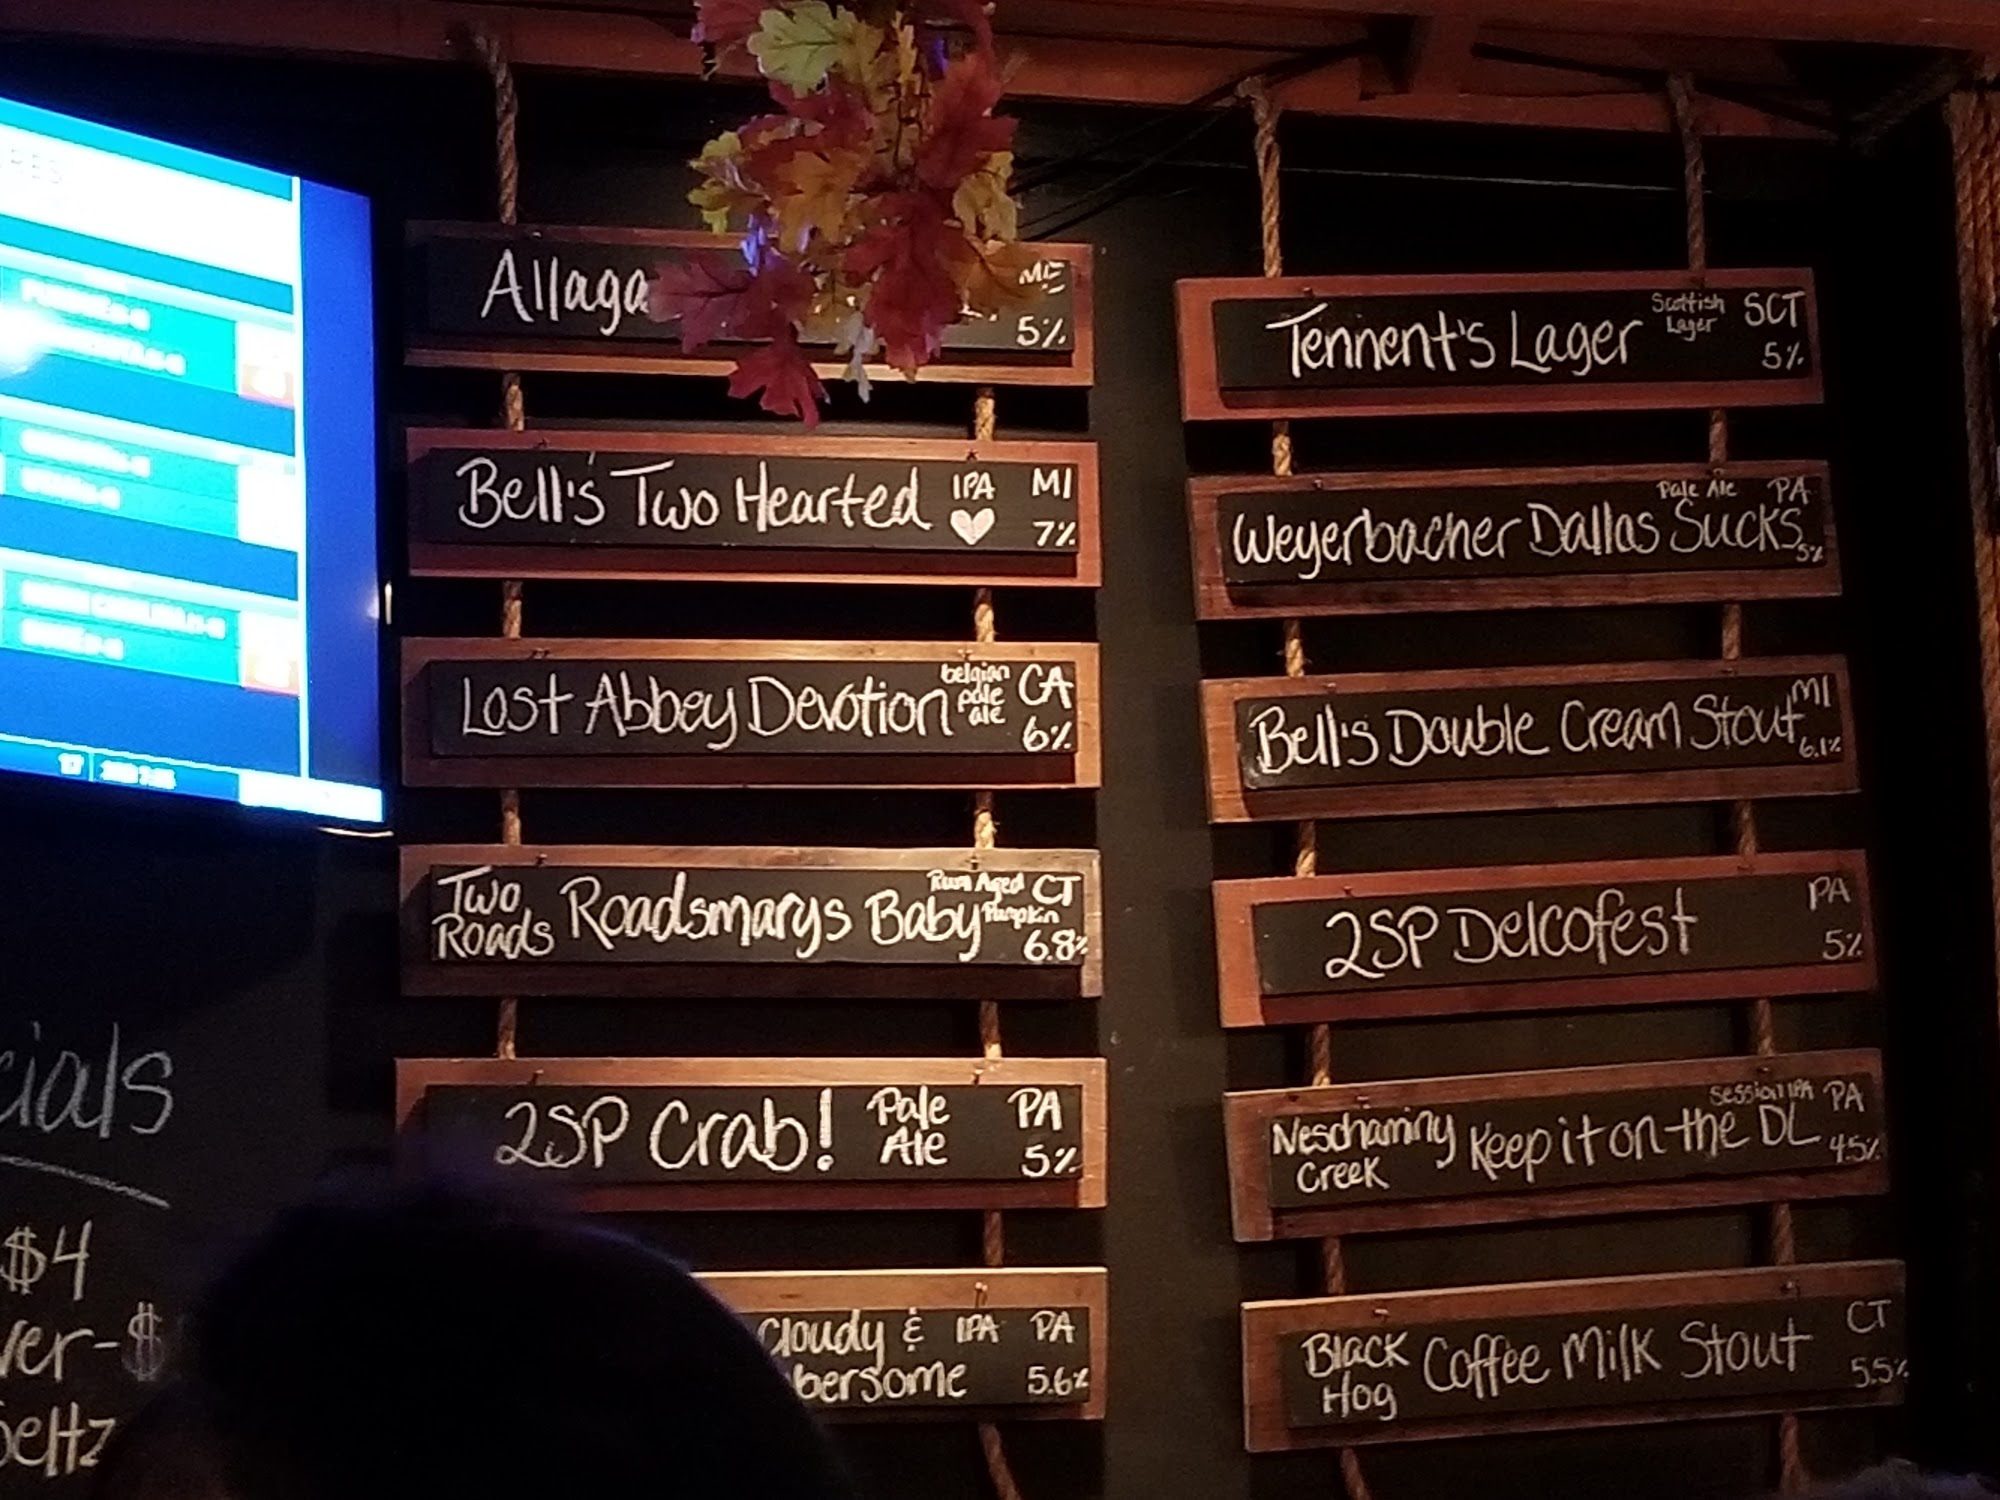 Allaga
ME
5%
Bell's Two Hearted IPA MI
7%
Lost Abbey Devotion belgian pale ale CA
6%
Two Roads Roadsmarys Baby Rum Aged Pumpkin CT
6.8%
2SP Crab! Pale Ale PA
5%
Cloudy & IPA PA
bersome 5.6%
Tennent's Lager Scottish Lager SCT
5%
Weyerbacher Dallas Sucks Pale Ale PA
5%
Bell's Double Cream Stout MI
6.1%
2SP Delcofest PA
5%
Neschaminy Creek Keep it on the DL Session IPA PA
4.5%
Black Hog Coffee Milk Stout CT
5.5%
cials
$4
ver-$
eltz